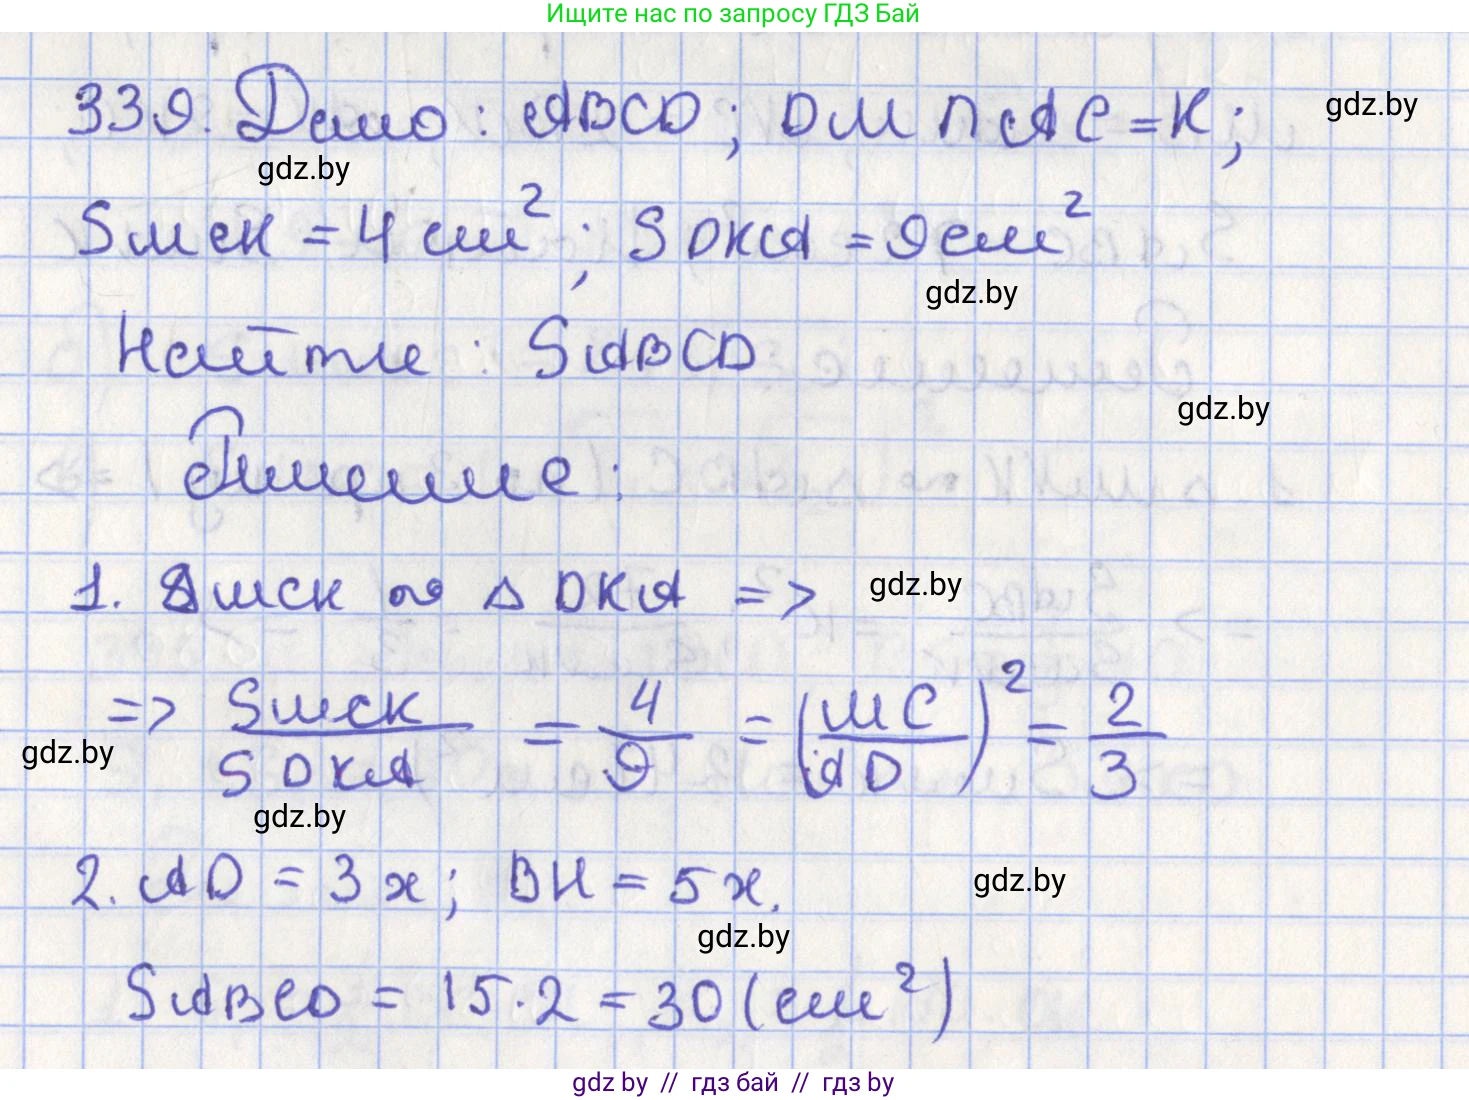 Ищите нас по запросу ГДЗ Бай
339. Дано: ABCD; DM ∩ AC = K;
gdz.by
gdz.by
SMCK = 4 см²; SDKA = 9 см²
gdz.by
Найти: SABCD
gdz.by
Решение:
1. ΔMCK ∾ ΔDKA =>
gdz.by
=> SMCK / SDKA = 4/9 = (MC/AD)² = 2/3
gdz.by
gdz.by
2. AD = 3x; BH = 5x.
gdz.by
gdz.by
SABCD = 15·2 = 30 (см²)
gdz by // гдз бай // гдз by